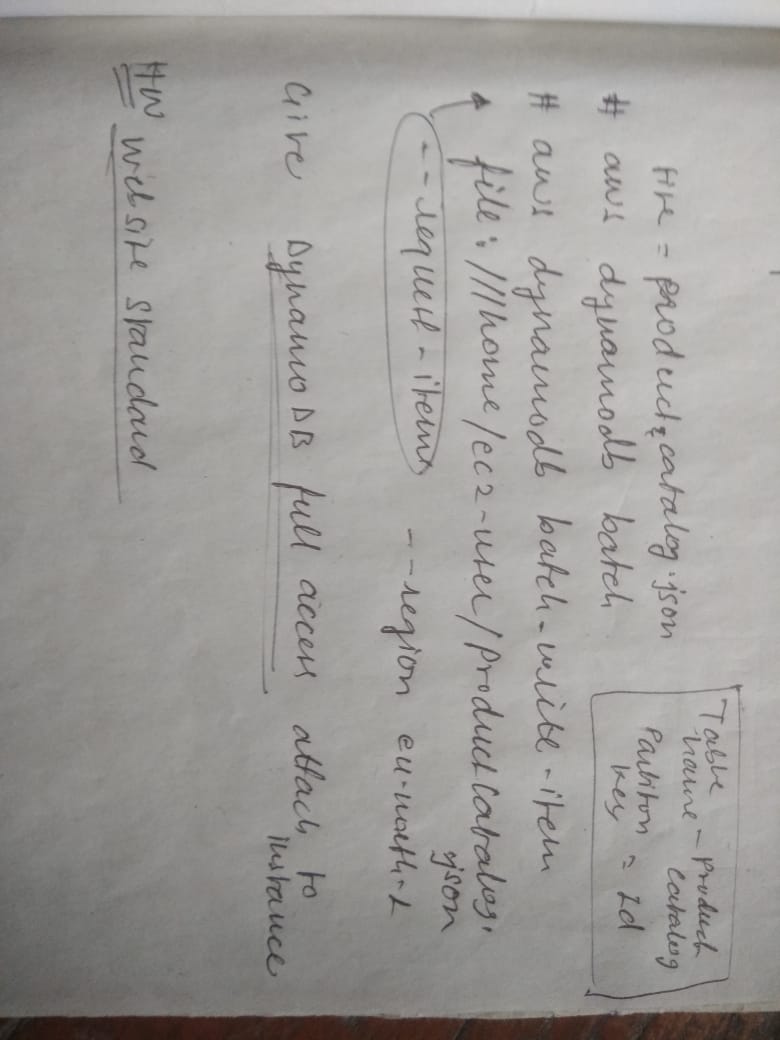 Table
name - Product
Catalog
Partition
key = Id
file = product_catalog.json
# aws dynamodb batch
# aws dynamodb batch-write-item
file:///home/ec2-user/ProductCatalog.
json
--request-items
--region eu-north-1
Give DynamoDB full access attach to
instance
HW website standard